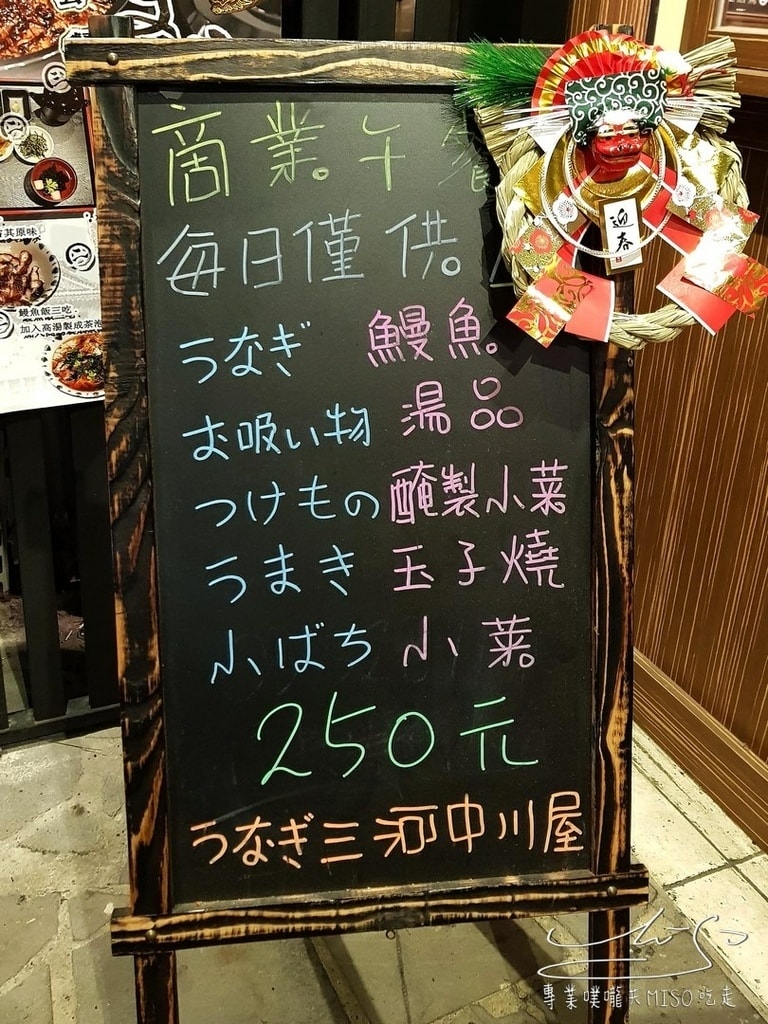 商業。午餐
每日僅供。
うなぎ 鰻魚。
お吸い物 湯品
つけもの 醃製小菜
うまき 玉子燒
小ばち 小菜。
250元
うなぎ三河中川屋
迎春
其原味
鰻魚飯三吃
加入高湯製成茶泡
專業噗嚨夫MISO吃走